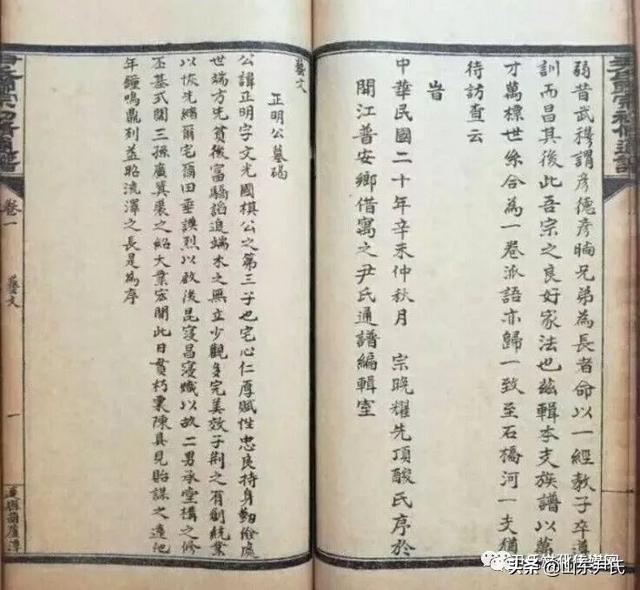 弱昔武穆謂彥德彥暔兄弟為長者命以一經教子卒
訓而昌其後此吾宗之良好家法也茲輯本支族譜以
才萬標世系合為一卷派語亦歸一致至石橋河一支猶
待訪查云
旹
中華民國二十年辛未仲秋月 宗晚耀先頂酸氏序於
開江普安鄉借寓之尹氏通譜編輯室
藝文
正明公墓碣
公諱正明字文光國棋公之第三子也宅心仁厚賦性忠良持身勤儉處
世端方先貧後富驕謟追端木之無立少觀多完美效子荊之有創統業
以恢先緒爾宅爾田垂謨烈以啟後昆寖昌寖熾以故二男承堂構之修
丕基式闊三孫廣箕裘之紹大業宏開此日貫朽粟陳具見貽謀之遠他
年鐘鳴鼎列益昭流澤之長是為序
卷一
藝文
一
头条 @山东尹氏